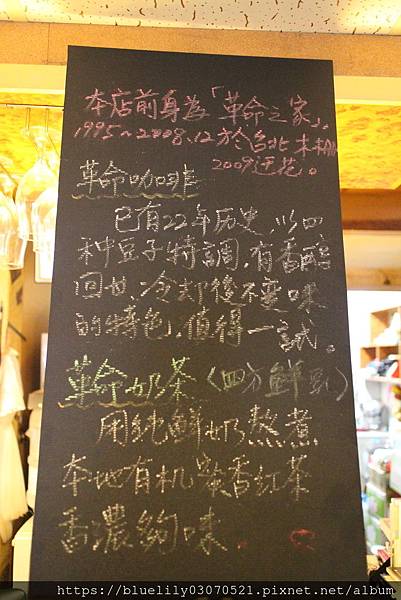 本店前身為「革命之家」.
1995~2008.12於台北木柵
2009迁花。
革命咖啡
已有22年历史,以四
种豆子特調,有香醇
回甘、冷却後不变味
的特色,值得一試。
革命奶茶(四方鮮乳)
用純鮮奶熬煮
本地有机蜜香紅茶
香濃夠味.
https://bluelily03070521.pixnet.net/album